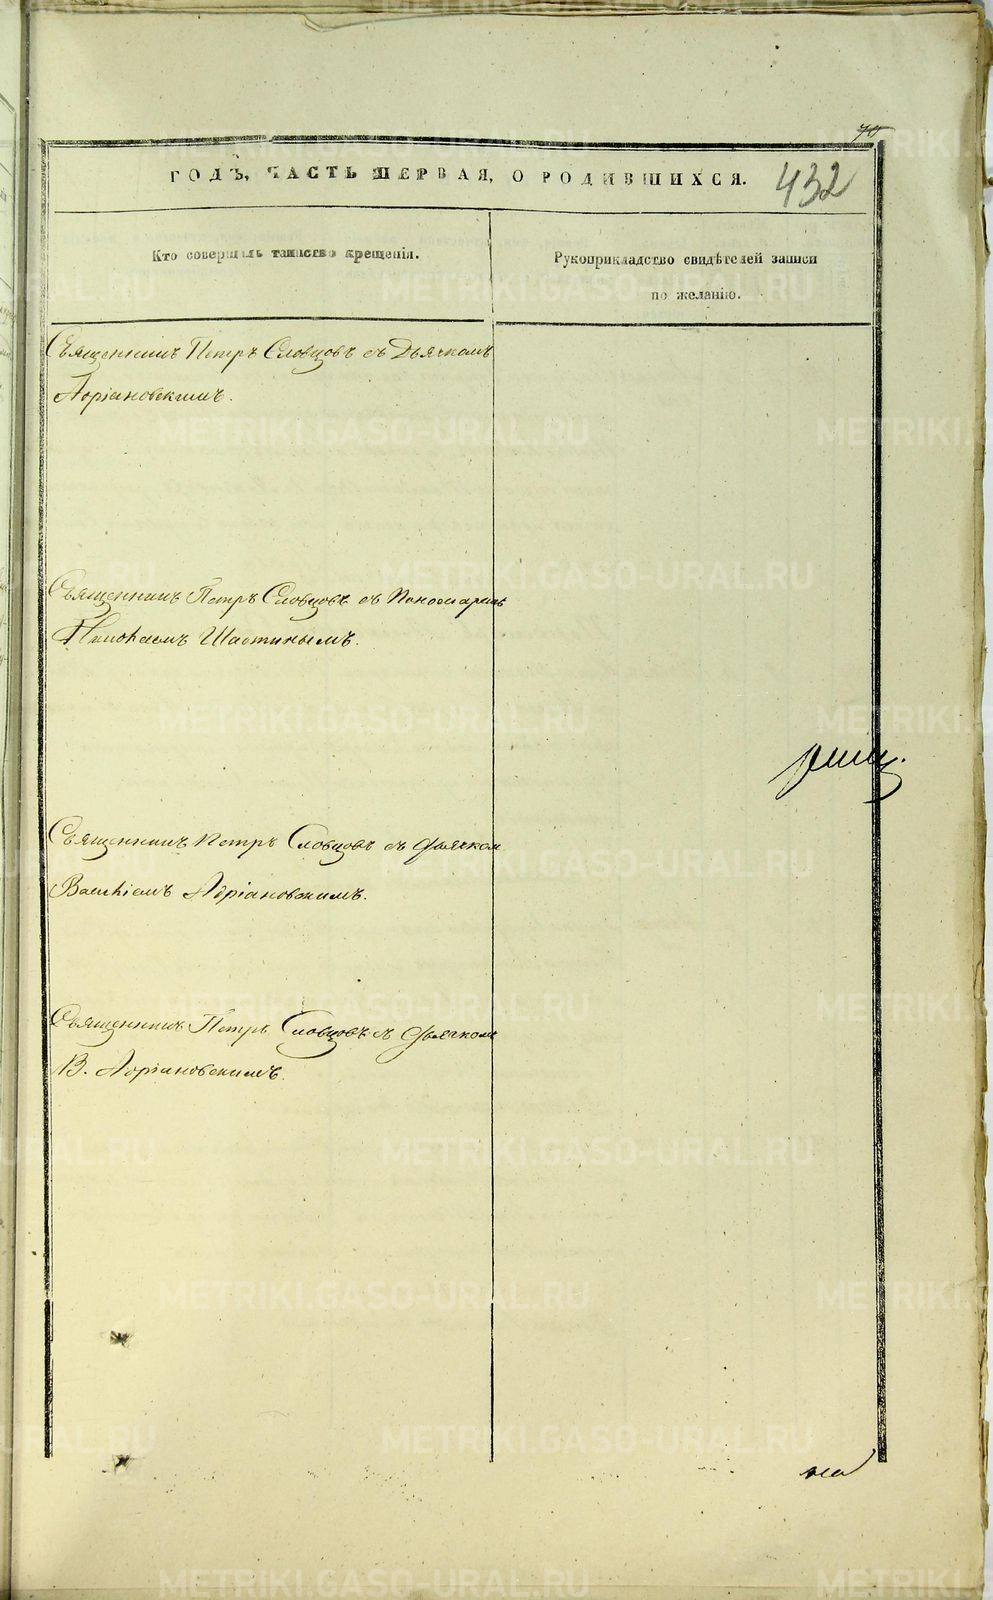 70
ГОДЪ, ЧАСТЬ ПЕРВАЯ, О РОДИВШИХСЯ. 432
Кто совершалъ таинство крещенія.
Рукоприкладство свидѣтелей записи
по желанію.
Священникъ Петръ Словцовъ съ Дьячкомъ
Адріановскимъ.
Священникъ Петръ Словцовъ съ Пономаремъ
Николаемъ Шастинымъ.
Священникъ Петръ Словцовъ съ Дьячком
Василіемъ Адріановскимъ.
Священникъ Петръ Словцовъ съ Дьячкомъ
В. Адріановскимъ.
METRIKI.GASO-URAL.RU